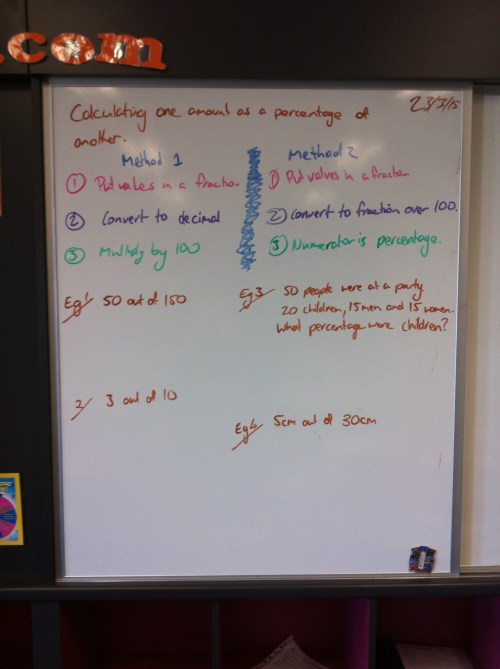 .com
Calculating one amount as a percentage of
another.
23/3/15
Method 1
① Put values in a fraction.
② Convert to decimal
③ Multiply by 100
Method 2
① Put values in a fraction
② Convert to fraction over 100.
③ Numerator is percentage.
Eg1 50 out of 150
2 3 out of 10
Eg3 50 people were at a party
20 children, 15 men and 15 women.
What percentage were children?
Eg4 5cm out of 30cm